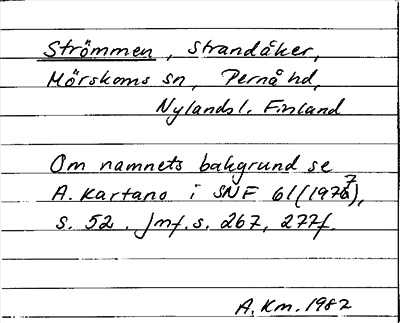 Strömmen, Strandåker,
Mörskoms sn, Pernå hd,
Nylandsl. Finland
Om namnets bakgrund se
A. Kartano i SNF 61(1977),
s. 52. Jmf. s. 267, 277f.
A.Km. 1982